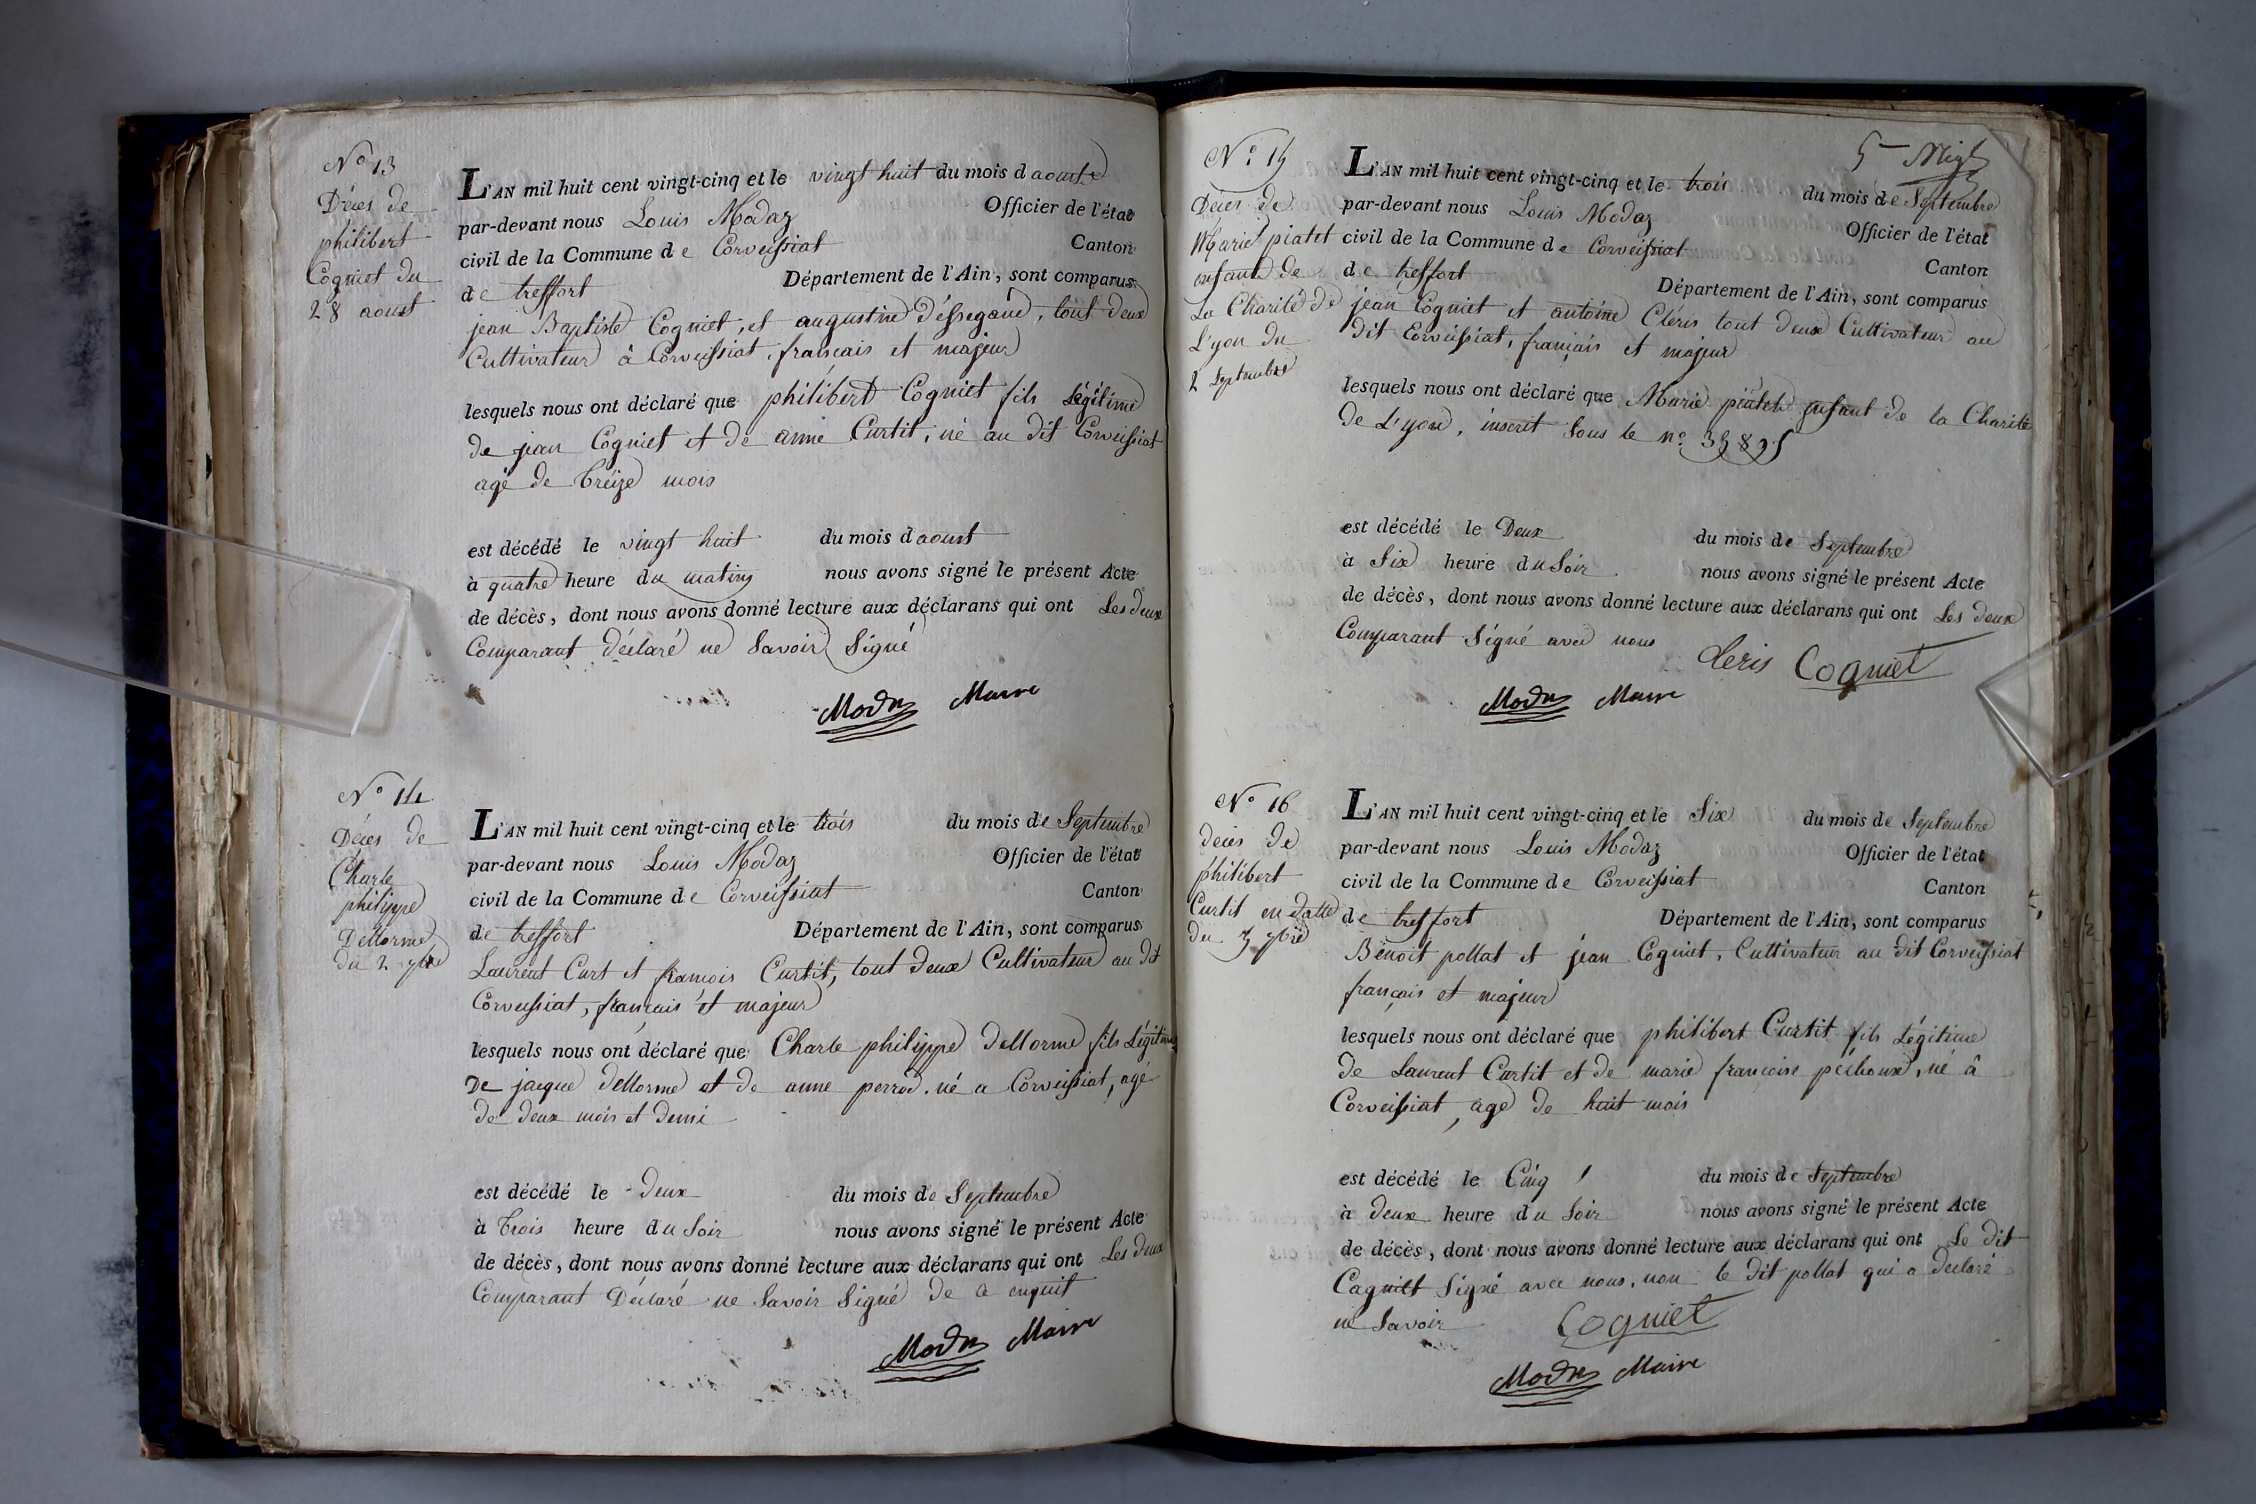 N.o 13
Décès de
philibert
Cogniet du
28 aoust
L'AN mil huit cent vingt-cinq et le vingt huit du mois d aoust
par-devant nous Louis Modaz Officier de l'état
civil de la Commune de Corveissiat Canton
de treffort Département de l'Ain, sont comparus
jean Baptiste Cogniet, et augustin, tout deux
Cultivateur à Corveissiat, francais et majeur
lesquels nous ont déclaré que philibert Cogniet fils Légitime
de jean Cogniet et de anne Curtit, né au dit Corveissiat
agé de treize mois
est décédé le vingt huit du mois d aoust
à quatre heure du matin nous avons signé le présent Acte
de décès, dont nous avons donné lecture aux déclarans qui ont Les deux
Comparant déclaré ne Savoir Signé
Modaz Maire
N.o 14
Décès de
Charle
philippe
Dellorme
du 2 7bre
L'AN mil huit cent vingt-cinq et le trois du mois de Septembre
par-devant nous Louis Modaz Officier de l'état
civil de la Commune de Corveissiat Canton
de treffort Département de l'Ain, sont comparus
Laurent Curt et francois Curtit, tout deux Cultivateur au dit
Corveissiat, français et majeur
lesquels nous ont déclaré que Charle philippe dellorme fils Légitime
De jacque dellorme et de anne perrod. né a Corveissiat, agé
de deux mois et demi
est décédé le deux du mois de Septembre
à trois heure du Soir nous avons signé le présent Acte
de décès, dont nous avons donné lecture aux déclarans qui ont Les deux
Comparant Déclaré ne Savoir Signé de ce enquit
Modaz Maire
5
N.o 15
Décès de
Marie piatet
enfant de
La Charité de
L'yon du
2 Septembre
L'AN mil huit cent vingt-cinq et le trois du mois de Septembre
par-devant nous Louis Modaz Officier de l'état
civil de la Commune de Corveissiat Canton
de treffort Département de l'Ain, sont comparus
jean Cogniet et antoine Cléris tout deux Cultivateur au
dit Corveissiat, français et majeur
lesquels nous ont déclaré que Marie piatet enfant de la Charité
de L'yon, inscrit Sous le n.o
est décédé le Deux du mois de Septembre
à Six heure du Soir nous avons signé le présent Acte
de décès, dont nous avons donné lecture aux déclarans qui ont Les deux
Comparant Signé avec nous
Cleris Cogniet
Modaz Maire
N.o 16
décès de
philibert
Curtit en datte
du 5 7bre
L'AN mil huit cent vingt-cinq et le Six du mois de Septembre
par-devant nous Louis Modaz Officier de l'état
civil de la Commune de Corveissiat Canton
de treffort Département de l'Ain, sont comparus
Benoit pollat et jean Cogniet, Cultivateur au dit Corveissiat
français et majeur
lesquels nous ont déclaré que philibert Curtit fils Légitime
de Laurent Curtit et de marie francoise péchoux, né à
Corveissiat, agé de huit mois
est décédé le Cinq du mois de Septembre
à deux heure du Soir nous avons signé le présent Acte
de décès, dont nous avons donné lecture aux déclarans qui ont Le dit
Cogniet Signé avec nous, non le dit pollat qui a declaré
ne Savoir
Cogniet
Modaz Maire